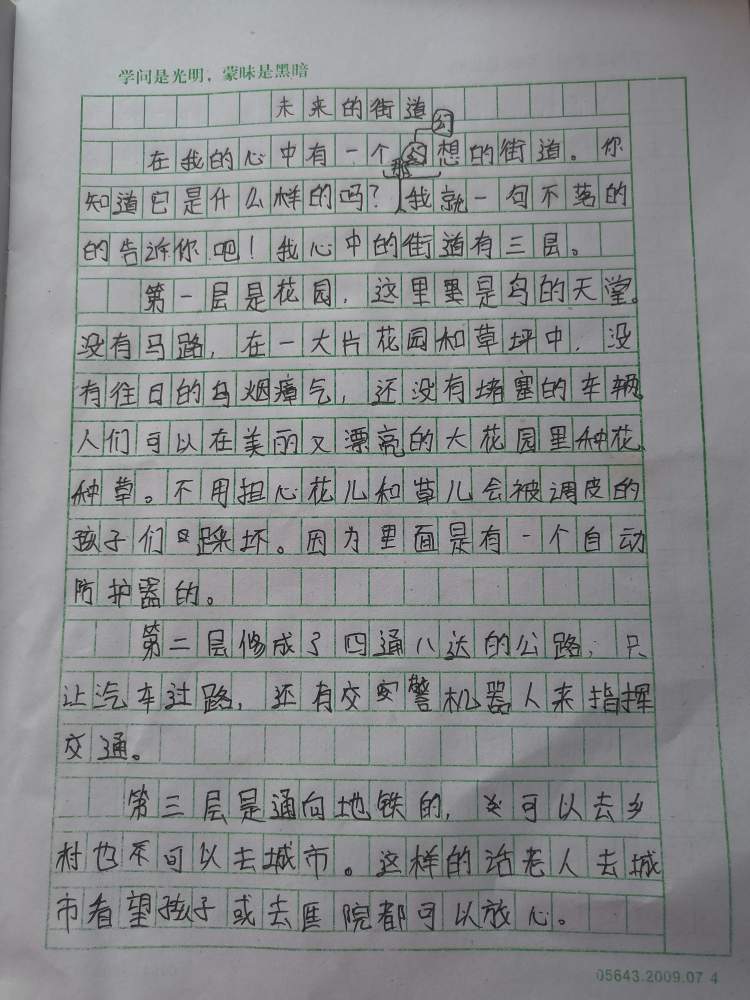 学问是光明，蒙昧是黑暗
未来的街道
幻
在我的心中有一个幻想的街道。你
那
知道它是什么样的吗？我就一句不落的
的告诉你吧！我心中的街道有三层。
第一层是花园，这里是鸟的天堂。
没有马路，在一大片花园和草坪中，没
有往日的乌烟瘴气，还没有堵塞的车辆。
人们可以在美丽又漂亮的大花园里种花
种草。不用担心花儿和草儿会被调皮的
孩子们踩坏。因为里面是有一个自动
防护器的。
第二层修成了四通八达的公路，只
让汽车过路，还有交警机器人来指挥
交通。
第三层是通向地铁的，可以去乡
村也可以去城市。这样的话老人去城
市看望孩子或去医院都可以放心。
05643.2009.07 4